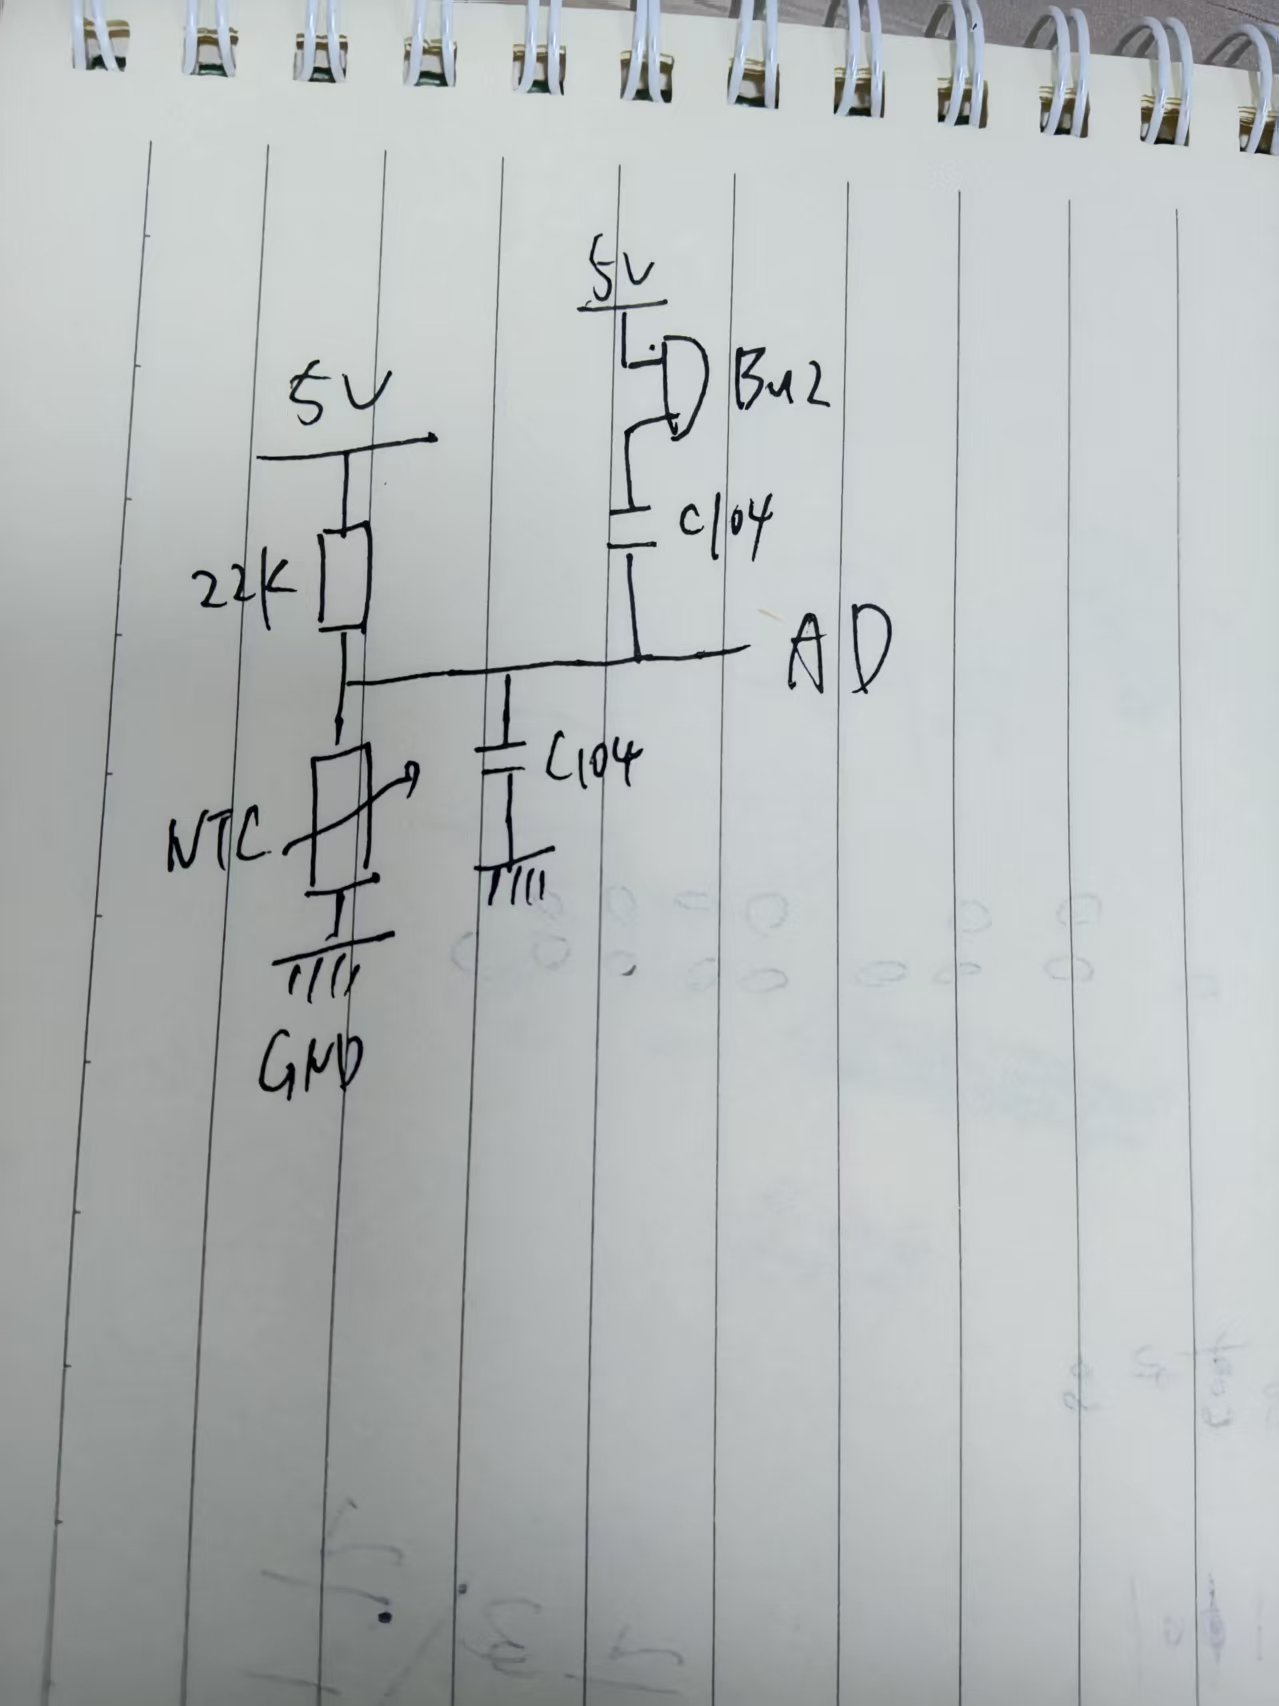 5V
5V
Buz
22K
C104
AD
C104
NTC
GND